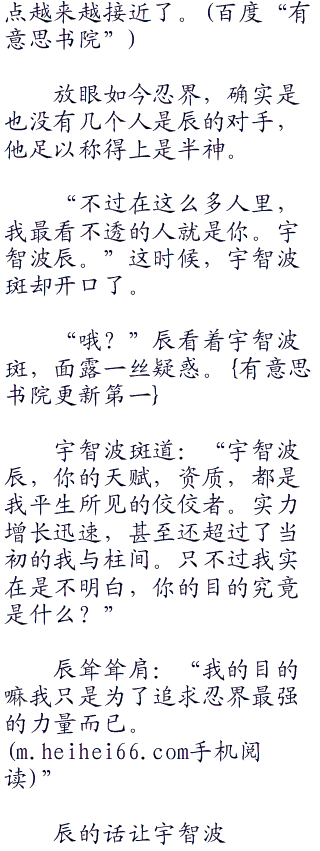 点越来越接近了。(百度“有
意思书院”)
放眼如今忍界，确实是
也没有几个人是辰的对手，
他足以称得上是半神。
“不过在这么多人里，
我最看不透的人就是你。宇
智波辰。”这时候，宇智波
斑却开口了。
“哦？”辰看着宇智波
斑，面露一丝疑惑。{有意思
书院更新第一}
宇智波斑道：“宇智波
辰，你的天赋，资质，都是
我平生所见的佼佼者。实力
增长迅速，甚至还超过了当
初的我与柱间。只不过我实
在是不明白，你的目的究竟
是什么？”
辰耸耸肩：“我的目的
嘛我只是为了追求忍界最强
的力量而已。
(m.heihei66.com手机阅
读)”
辰的话让宇智波